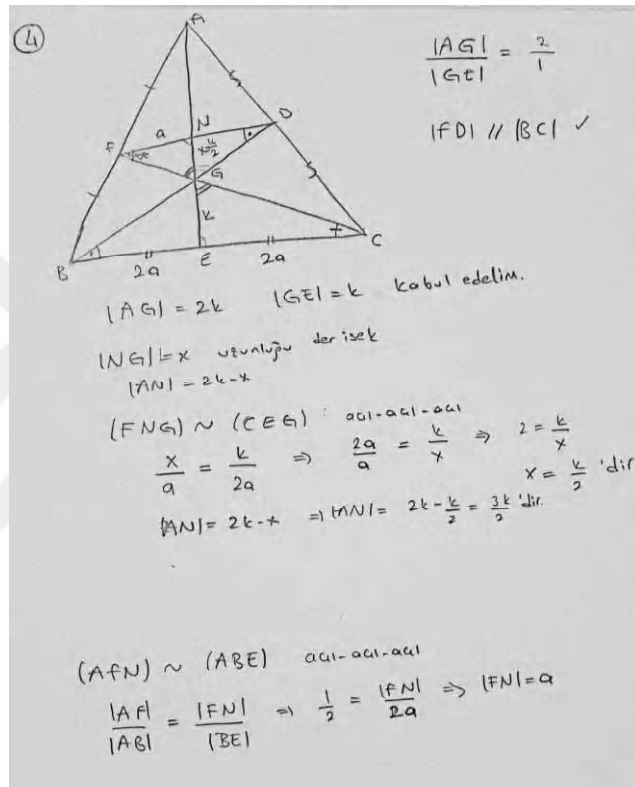 4
A
|AG| / |GE| = 2 / 1
|FD| // |BC| ✓
F a N D
x = k/2
G
k
B 2a E 2a C
|AG| = 2k |GE| = k kabul edelim.
|NG| = x uzunluğu der isek
|AN| = 2k-x
(FNG) ~ (CEG) : açı-açı-açı
x/a = k/2a ⇒ 2a/a = k/x ⇒ 2 = k/x
x = k/2 'dir
|AN| = 2k-x ⇒ |AN| = 2k - k/2 = 3k/2 'dir.
(AFN) ~ (ABE) açı-açı-açı
|AF|/|AB| = |FN|/|BE| ⇒ 1/2 = |FN|/2a ⇒ |FN| = a